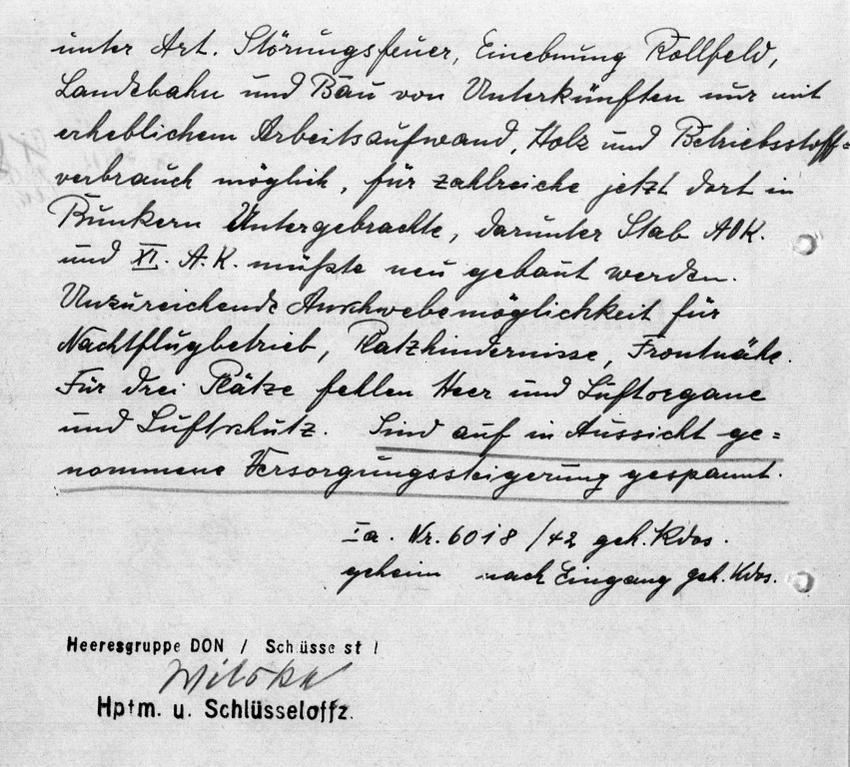 unter Art. Störungsfeuer, Einebnung Rollfeld,
Landebahn und Bau von Unterkünften nur mit
erheblichem Arbeitsaufwand, Holz und Betriebsstoff=
verbrauch möglich, für zahlreiche jetzt dort in
Bunkern Untergebrachte, darunter Stab AOK.
und XI. A.K. müßte neu gebaut werden.
Unzureichende Anschwebemöglichkeit für
Nachtflugbetrieb, Platzhindernisse, Frontnähe.
Für drei Plätze fehlen Heer und Luftorgane
und Luftschutz. Sind auf in Aussicht ge=
nommene Versorgungssteigerung gespannt.
Ia. Nr. 6018/42 geh. Kdos.
geheim nach Eingang geh. Kdos.
Heeresgruppe DON / Schüsse st l
Hptm. u. Schlüsseloffz.